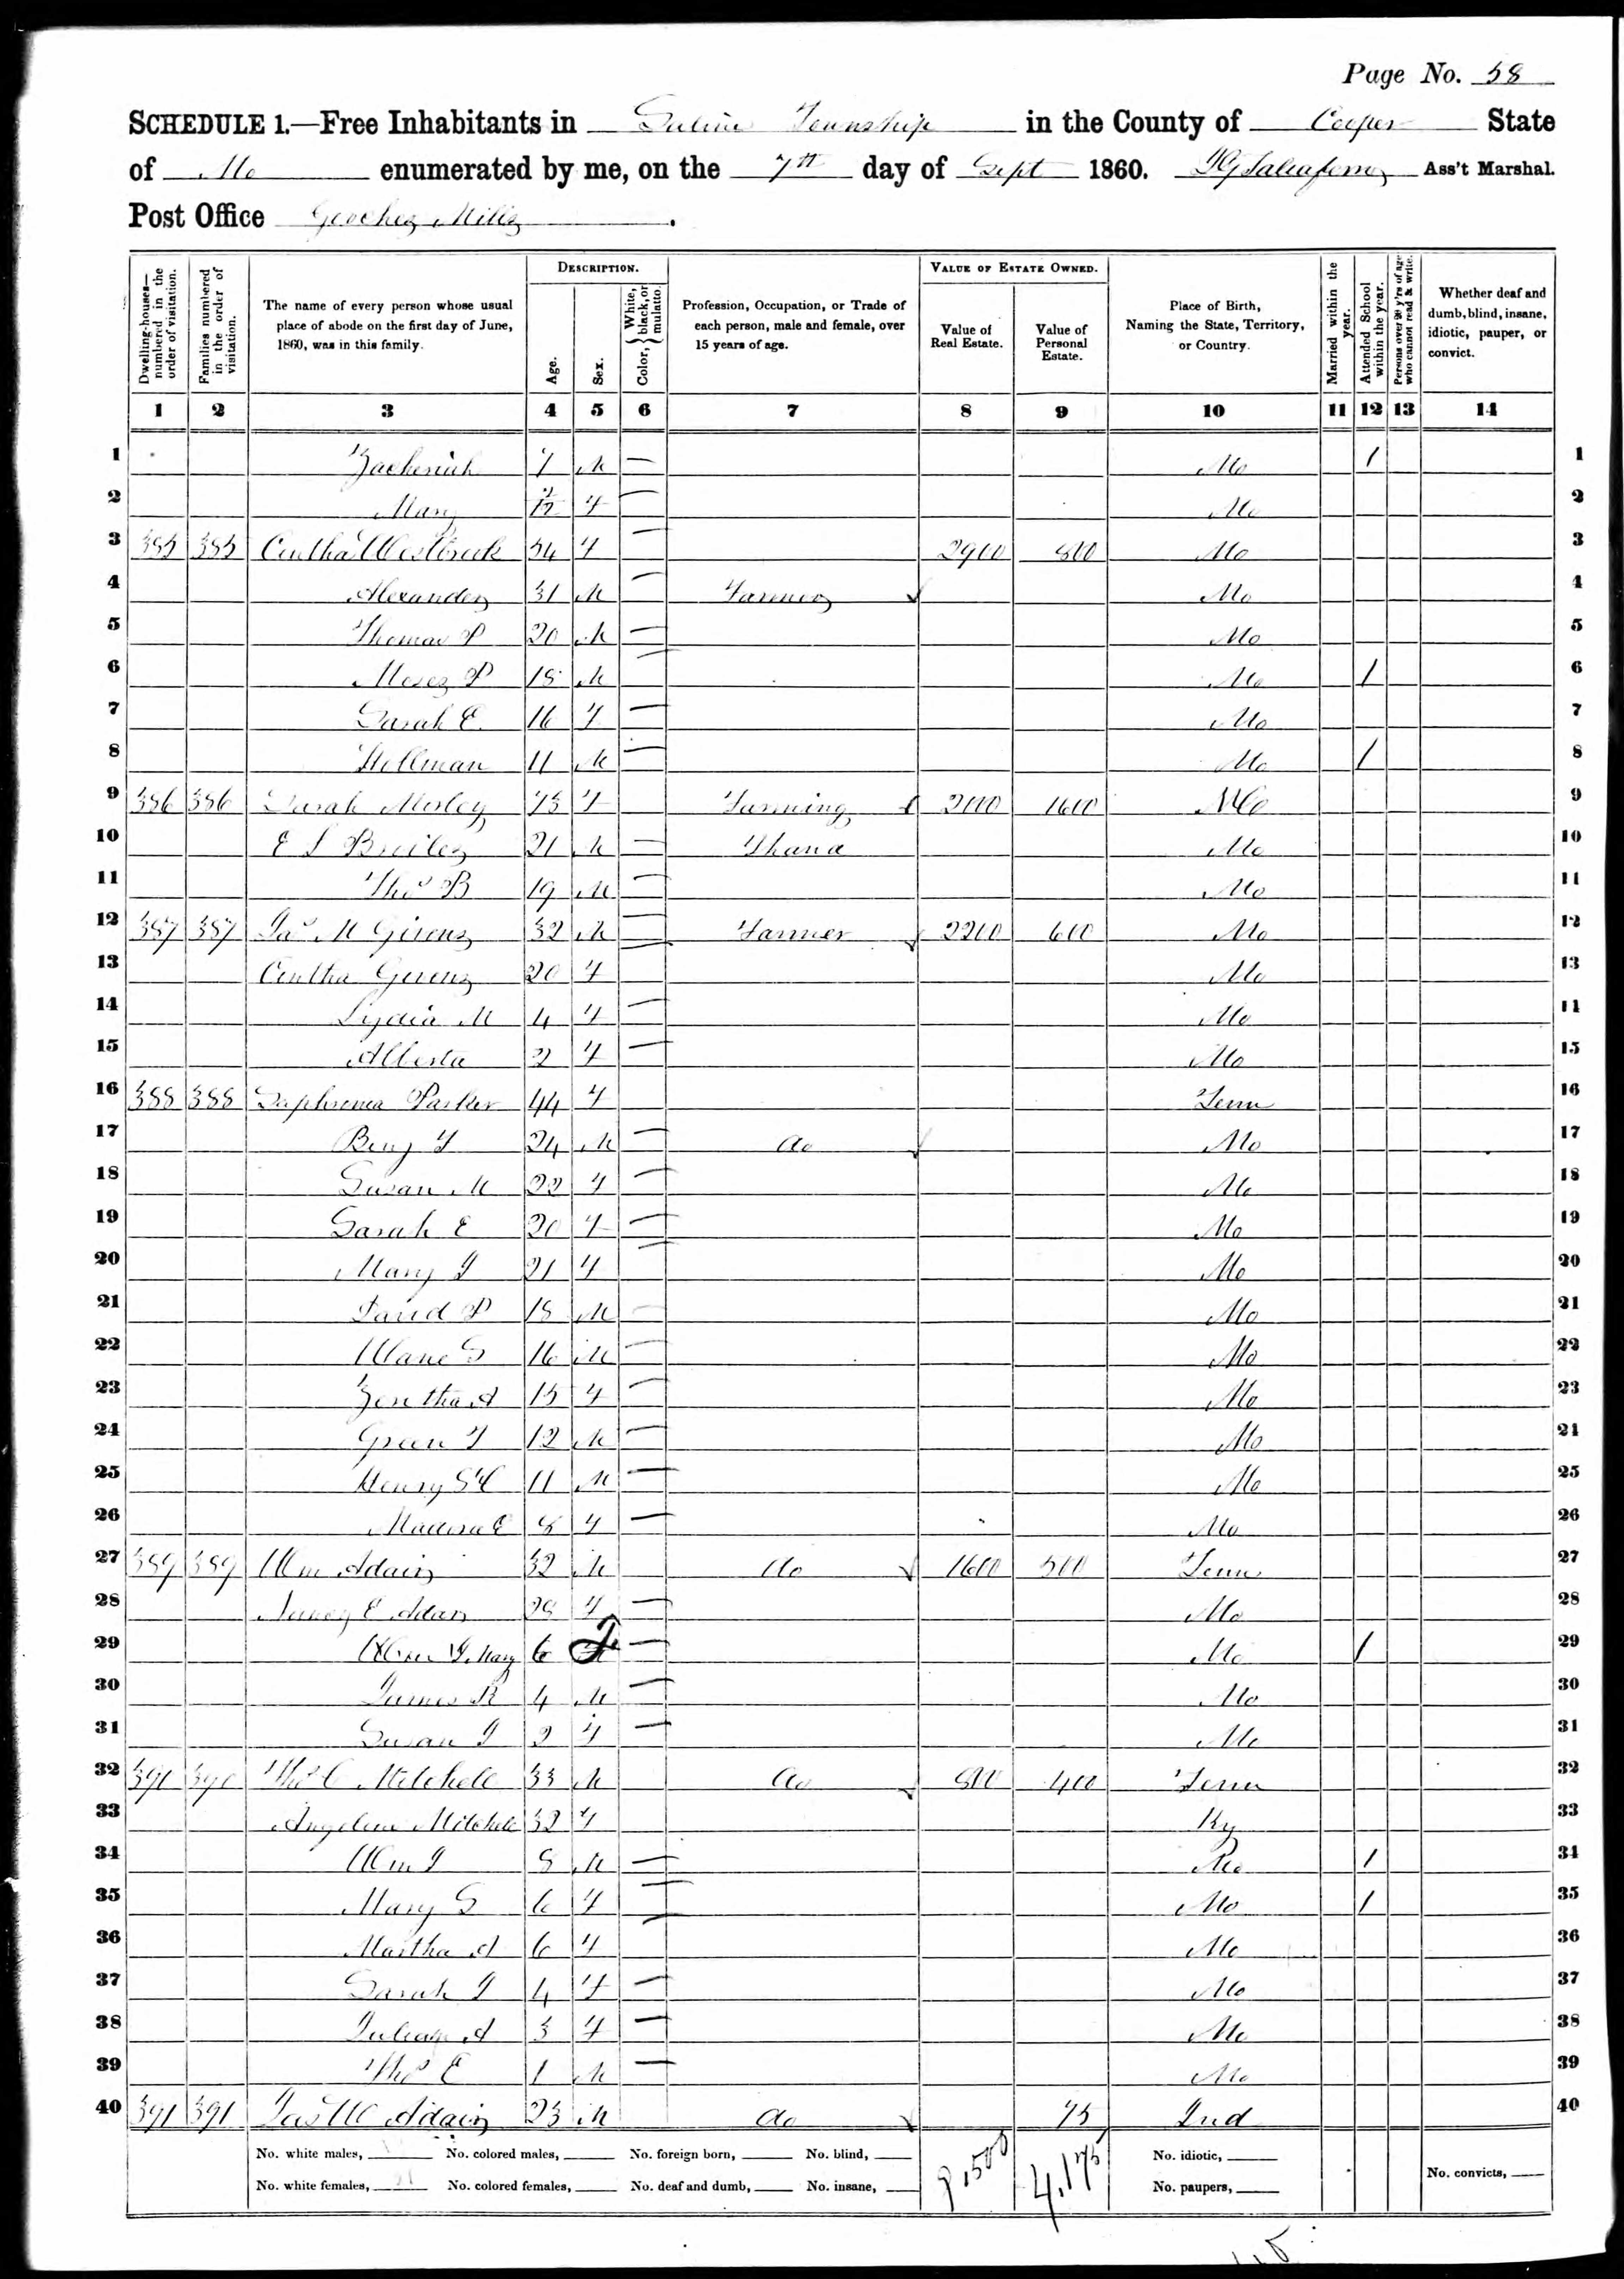 Page No. 58
SCHEDULE 1.—Free Inhabitants in Township in the County of Cooper State
of Mo enumerated by me, on the 7th day of Sept 1860. Ass't Marshal.
Post Office
Dwelling-houses—numbered in the order of visitation.
Families numbered in the order of visitation.
The name of every person whose usual place of abode on the first day of June, 1860, was in this family.
Description.
Age.
Sex.
Color, { White, black, or mulatto.
Profession, Occupation, or Trade of each person, male and female, over 15 years of age.
Value of Estate Owned.
Value of Real Estate.
Value of Personal Estate.
Place of Birth, Naming the State, Territory, or Country.
Married within the year.
Attended School within the year.
Persons over 20 y'rs of age who cannot read & write.
Whether deaf and dumb, blind, insane, idiotic, pauper, or convict.
1 2 3 4 5 6 7 8 9 10 11 12 13 14
1 Zacheriah 7 M — Mo / 1
2 Mary F — Mo 2
3 385 385 Westbrook 54 F — 2900 800 Mo 3
4 Alexander 31 M — Farmer Mo 4
5 Thomas P 20 M — Mo 5
6 Moses P 18 M — Mo / 6
7 Sarah E. 16 F — Mo 7
8 11 M — Mo / 8
9 386 386 Sarah Mosley 73 F Farming 2000 1600 Mo 9
10 E S 21 M — Mo 10
11 Thos B 19 M — Mo 11
12 387 387 Jas M Givens 32 M — Farmer 2200 600 Mo 12
13 Givens 20 F — Mo 13
14 Lydia M 4 F — Mo 14
15 Alberta 2 F — Mo 15
16 388 388 Saphronia Parker 44 F Tenn 16
17 Benj F 24 M — do Mo 17
18 Susan M 22 F — Mo 18
19 Sarah E 20 F — Mo 19
20 Mary J 21 F — Mo 20
21 David P 18 M — Mo 21
22 S 16 M — Mo 22
23 A 15 F — Mo 23
24 Green T 12 M — Mo 24
25 Henry 11 M — Mo 25
26 E 8 F — Mo 26
27 389 389 Wm Adair 32 M do 1600 500 Tenn 27
28 Nancy E Adair 28 F — Mo 28
29 Mary 6 F — Mo / 29
30 James R 4 M — Mo 30
31 Susan J 2 F — Mo 31
32 390 390 Thos C Mitchell 33 M do 800 400 Tenn 32
33 Angeline Mitchell 32 F Ky 33
34 Wm J 8 M — Mo / 34
35 Mary S 6 F — Mo / 35
36 Martha A 6 F — Mo 36
37 Sarah J 4 F — Mo 37
38 A 3 F — Mo 38
39 Thos E 1 M — Mo 39
40 391 391 Jas W Adair 23 M do 75 Ind 40
No. white males, No. colored males, No. foreign born, No. blind, 9,500 4,175 No. idiotic,
No. white females, 21 No. colored females, No. deaf and dumb, No. insane, No. paupers, No. convicts,